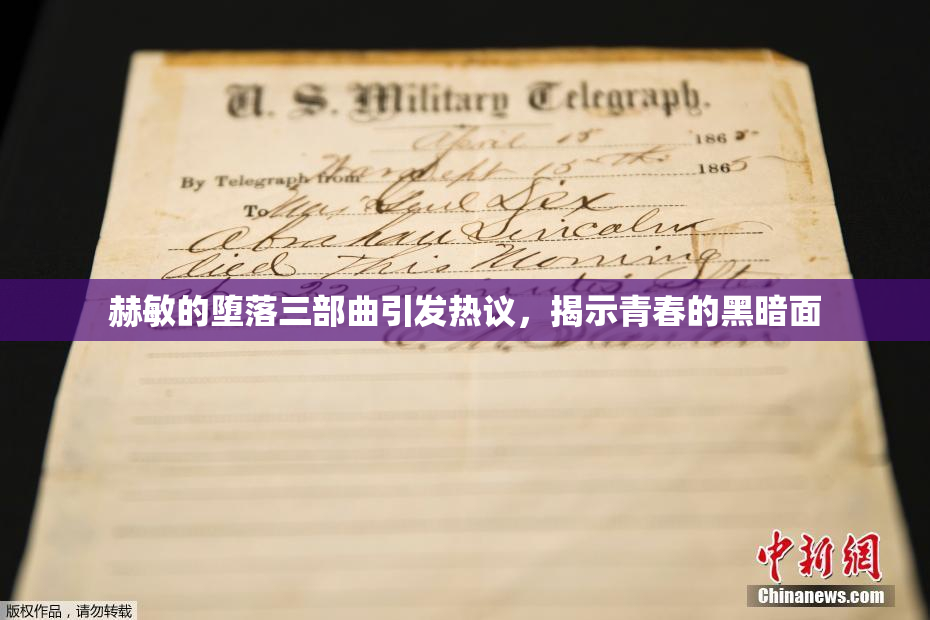 U. S. Military Telegraph.
April 15 1865
By Telegraph from War Dept 15th 1865
To Maj Genl Dix
Abraham Lincoln
died This Morning
22 minutes after
赫敏的堕落三部曲引发热议，揭示青春的黑暗面
E. M. Stanton
中新網
Chinanews.com
版权作品，请勿转载